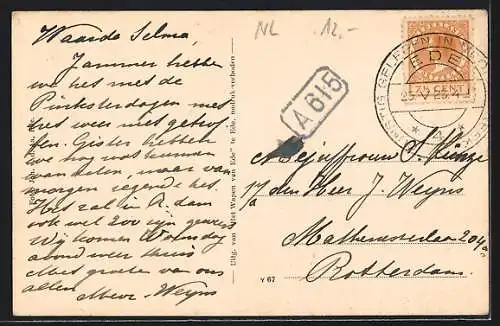 NL 12.-
Waarde Selma,
Jammer hebben
we het met de
Pinksterdagen met
het weer niet getrof-
fen. Gister hebben
we nog wat kunnen
wandelen, maar van
morgen regende het.
Het zal in R.dam
ook wel zoo zijn geweest
Wij komen Woensdag
avond weer thuis
Met groeten van ons
allen
Mevr. Weyns
Uitg. van „Hotel Het Wapen van Ede" te Ede, nadruk verboden
A 615
EDE
7½ CENT
GELEGEN IN
Mejuffrouw S.
p/a den Heer J. Weyns
Mathenesserlaan 204a
Rotterdam.
Y 67